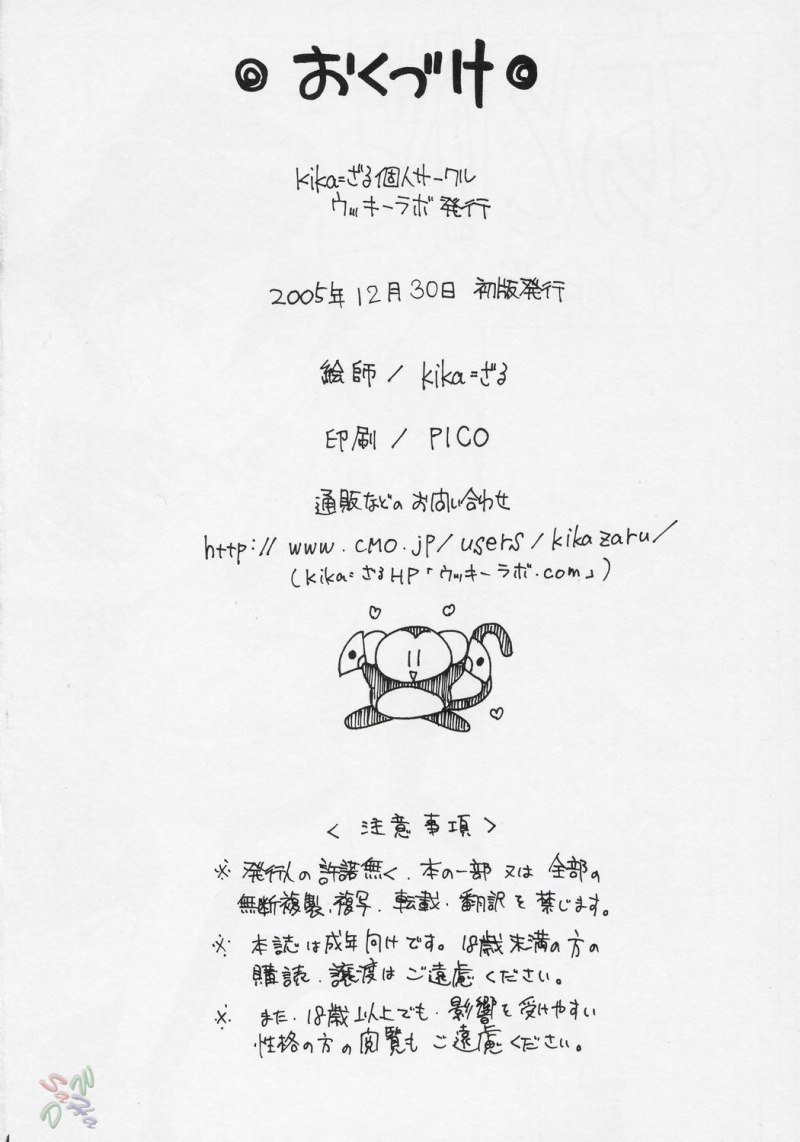 おくづけ
kika=ざる個人サークル
ウッキーラボ発行
2005年12月30日 初版発行
絵師 / kika=ざる
印刷 / PICO
通販などの お問い合わせ
http://www.cmo.jp/users/kikazaru/
(kika=ざるHP「ウッキーラボ.com」)
< 注意事項 >
※ 発行人の許諾無く、本の一部 又は 全部の
無断複製、複写、転載・翻訳を禁じます。
※ 本誌は成年向けです。18歳未満の方の
購読・譲渡はご遠慮ください。
※ また、18歳以上でも、影響を受けやすい
性格の方の閲覧もご遠慮ください。